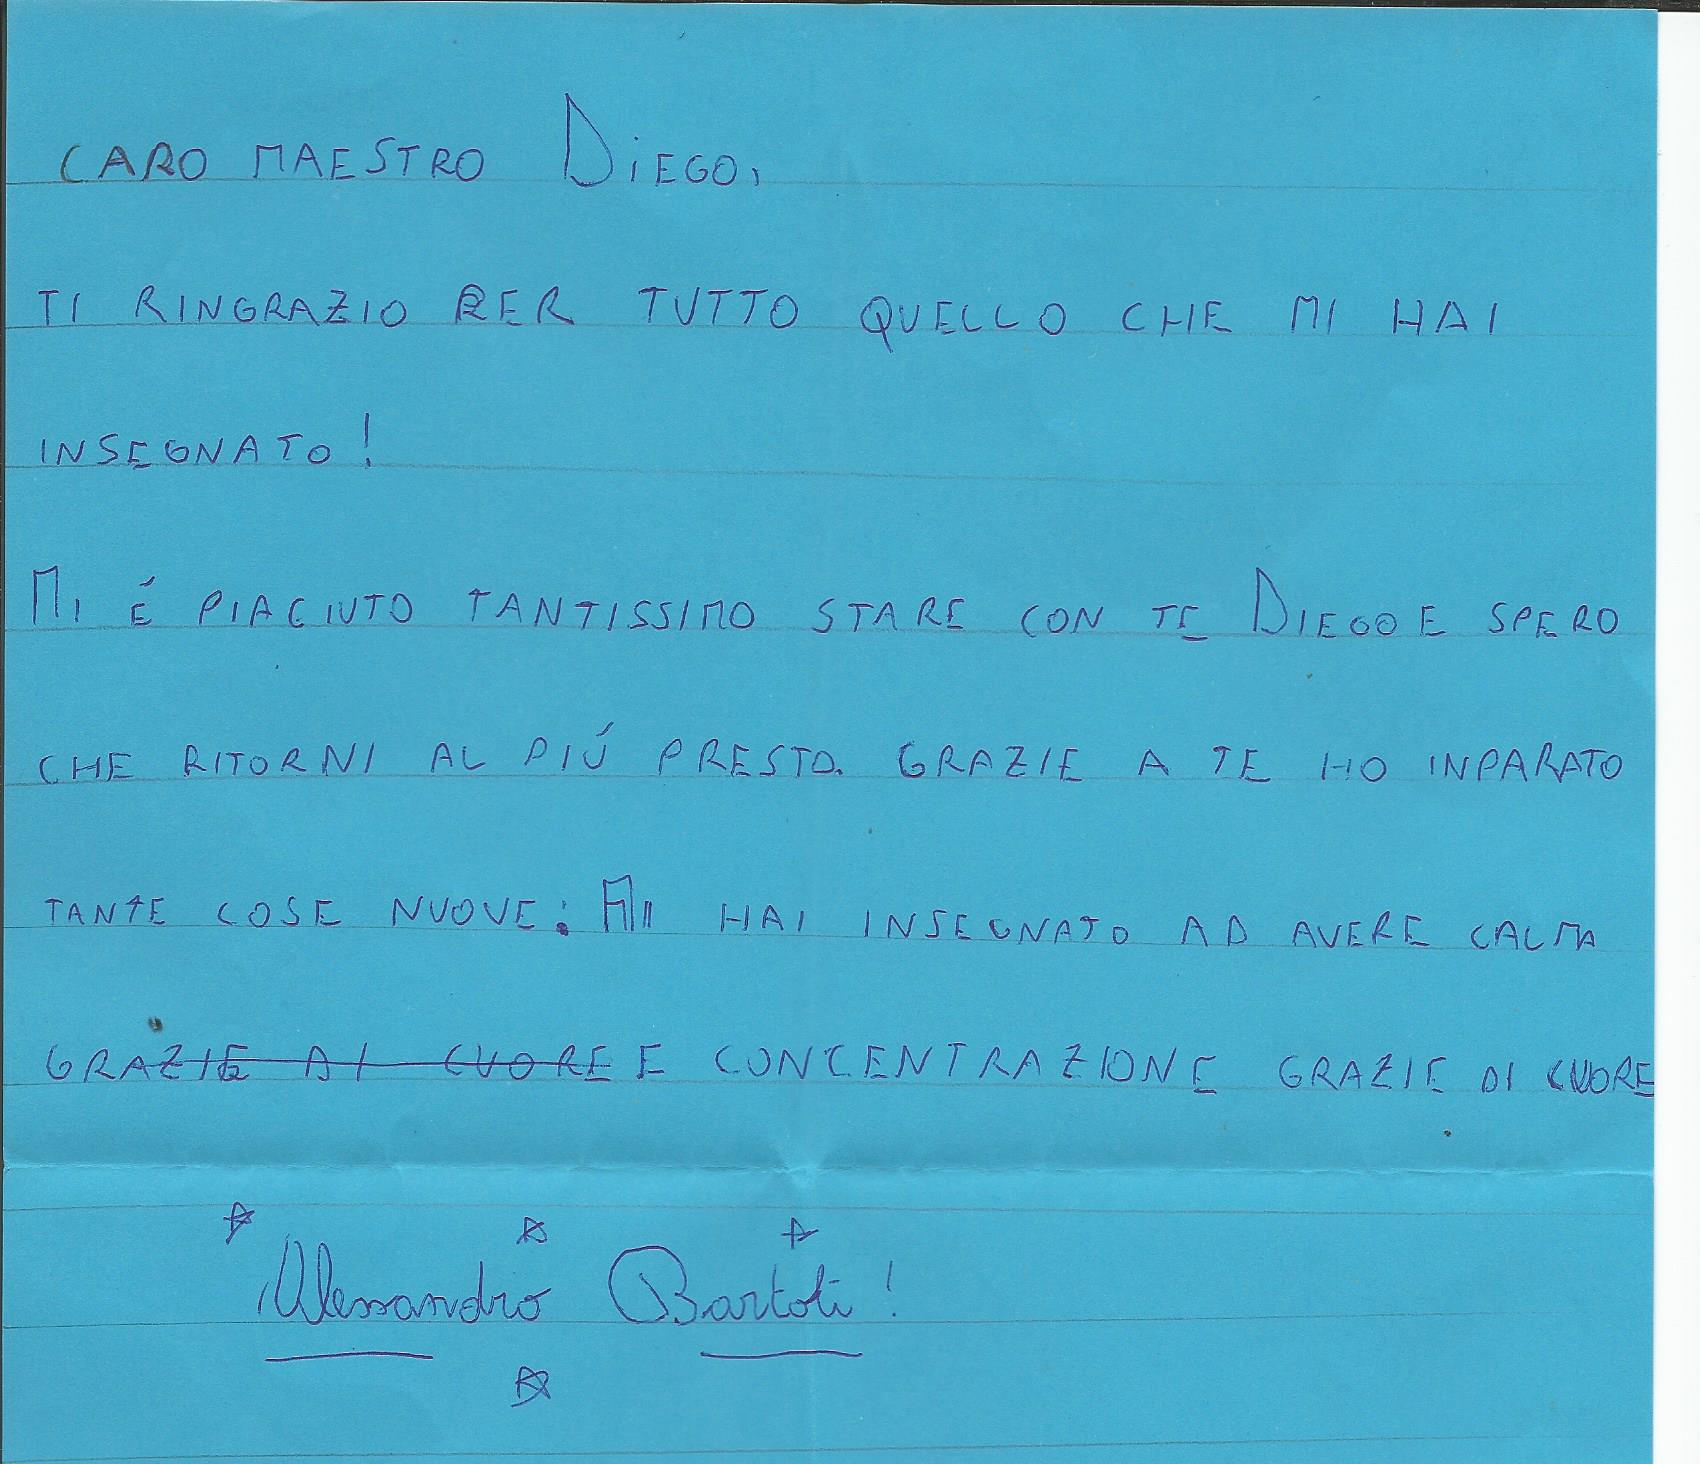 CARO MAESTRO DiEGO,
TI RINGRAZIO PER TUTTO QUELLO CHE MI HAI
INSEGNATO!
MI É PIACIUTO TANTISSIMO STARE CON TE DIEGO E SPERO
CHE RITORNI AL PIÚ PRESTO. GRAZIE A TE HO INPARATO
TANTE COSE NUOVE: MI HAI INSEGNATO AD AVERE CALMA
GRAZIE DI CUORE E CONCENTRAZIONE GRAZIE DI CUORE
Alessandro Bartoli!